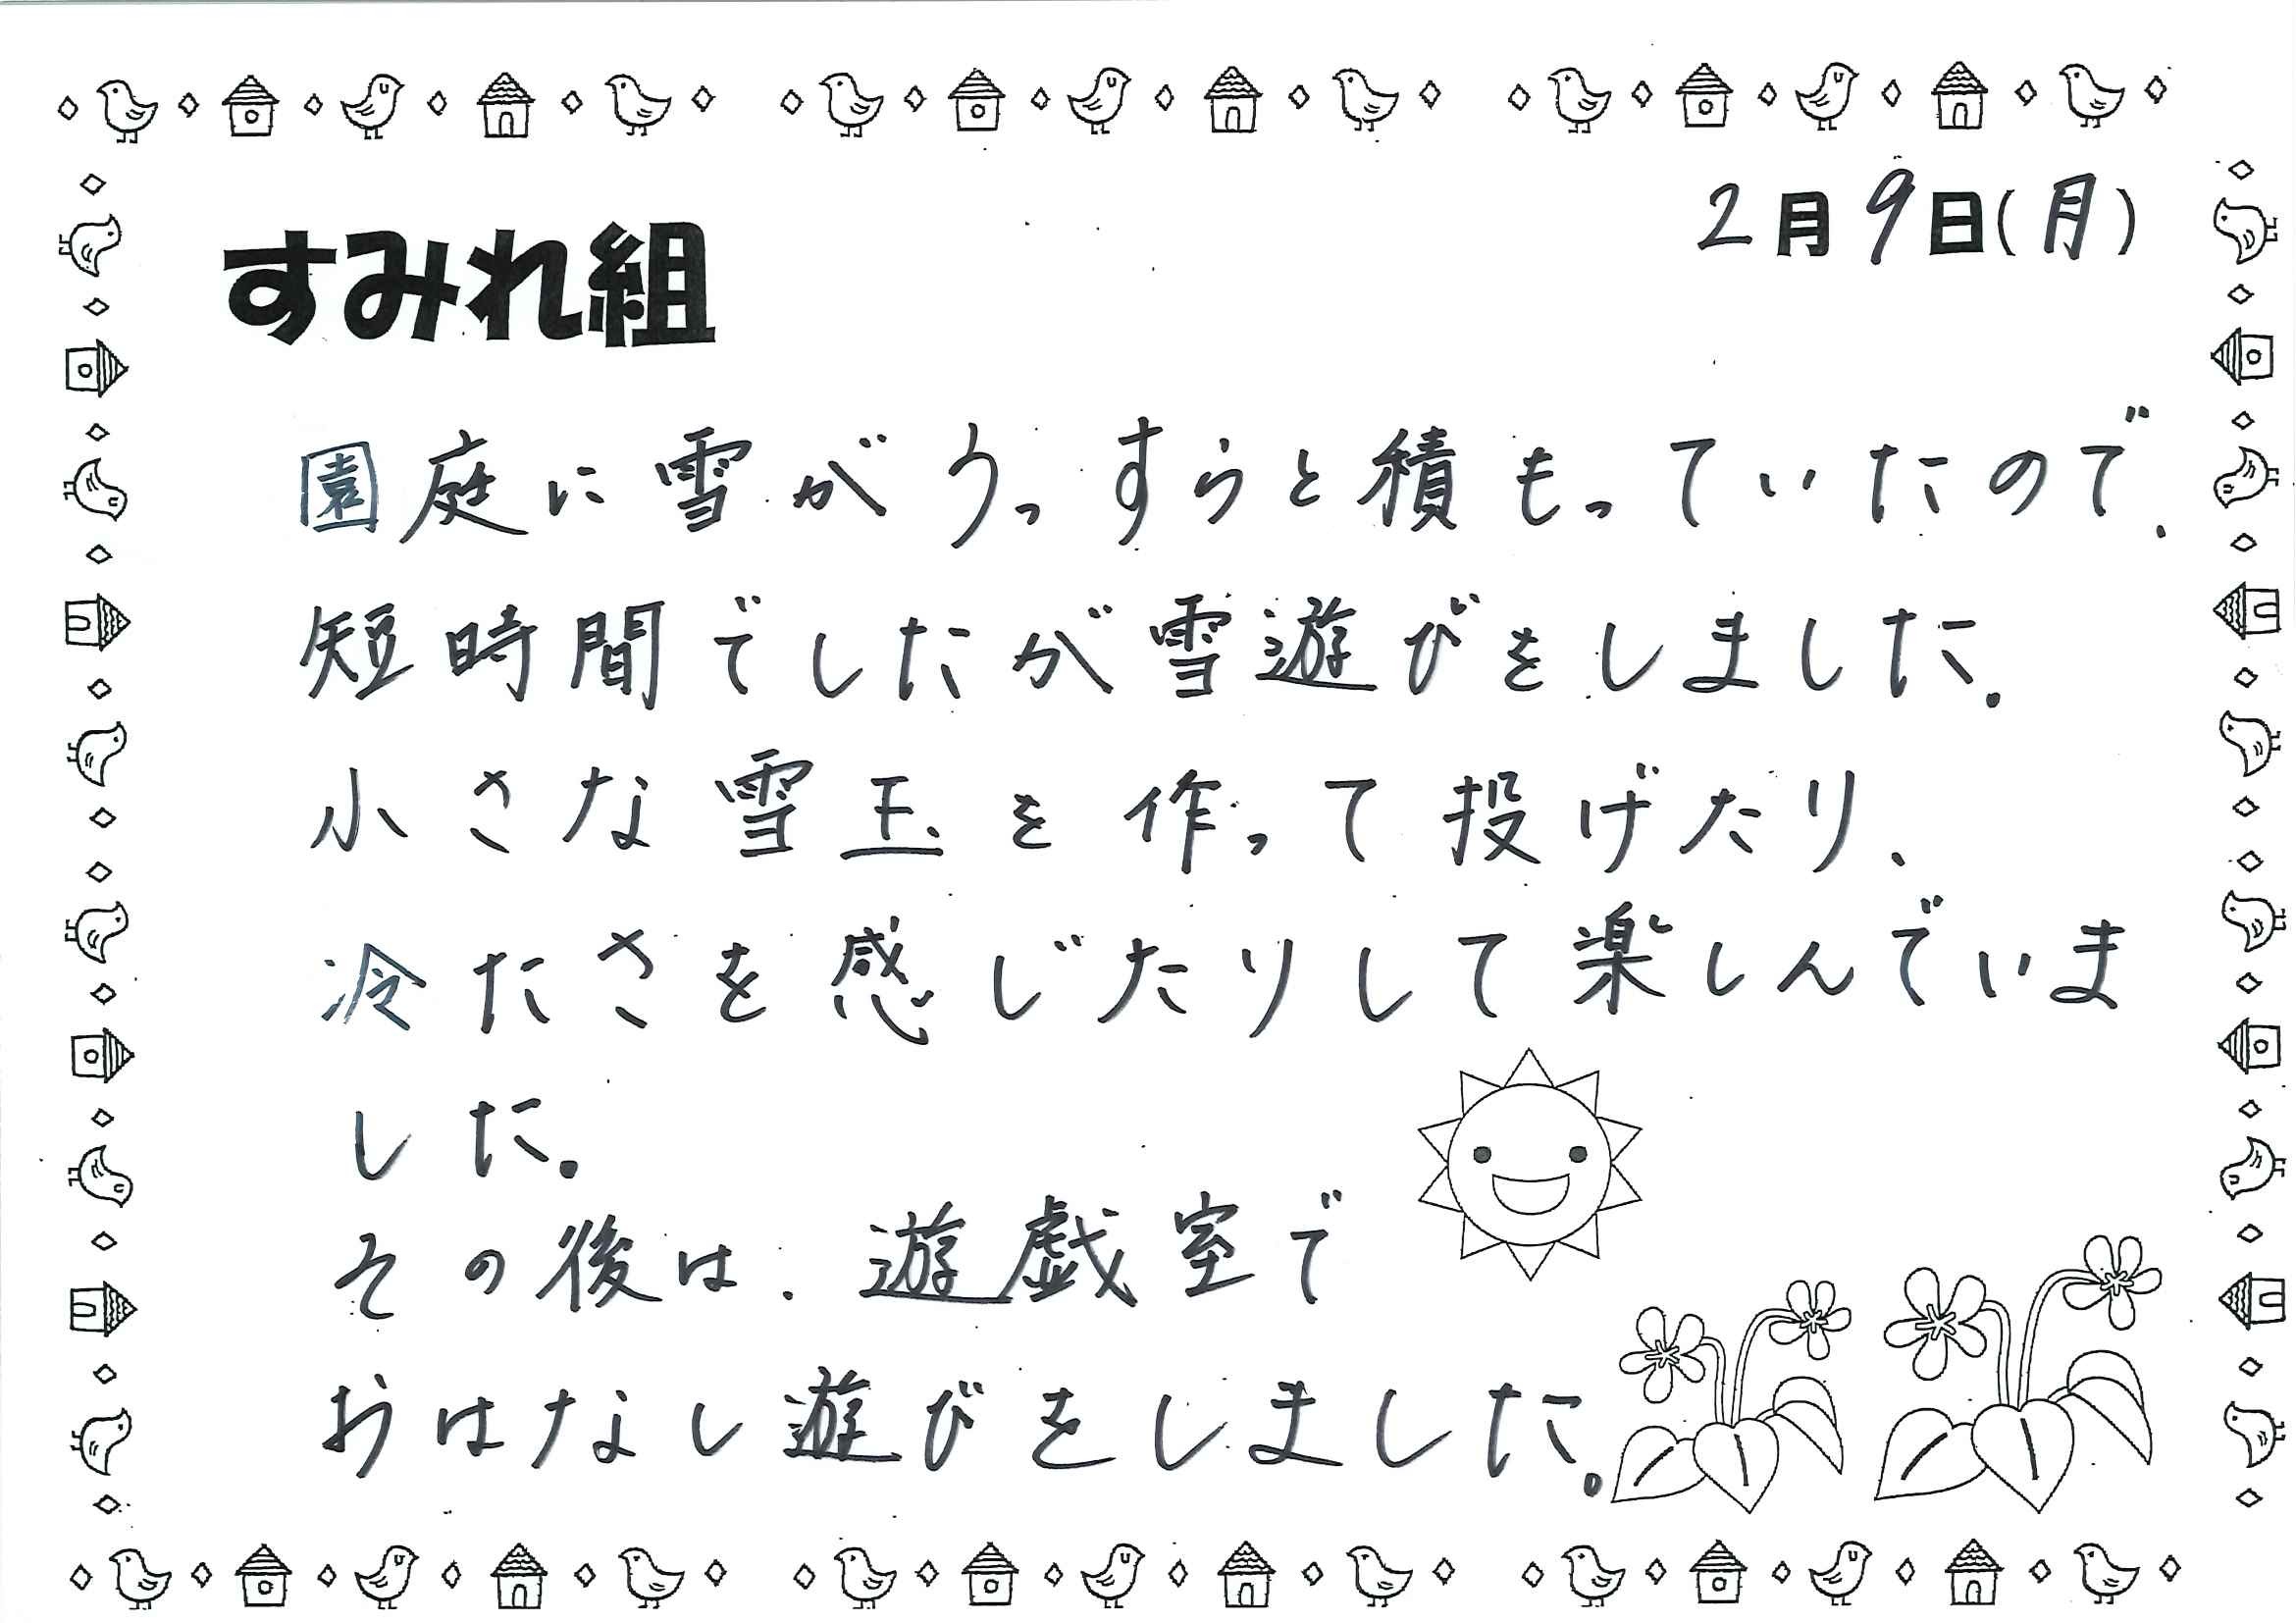 2月9日(月)
すみれ組
園庭に雪がうっすらと積もっていたので、
短時間でしたが雪遊びをしました。
小さな雪玉を作って投げたり、
冷たさを感じたりして楽しんでいま
した。
その後は、遊戯室で
おはなし遊びをしました。